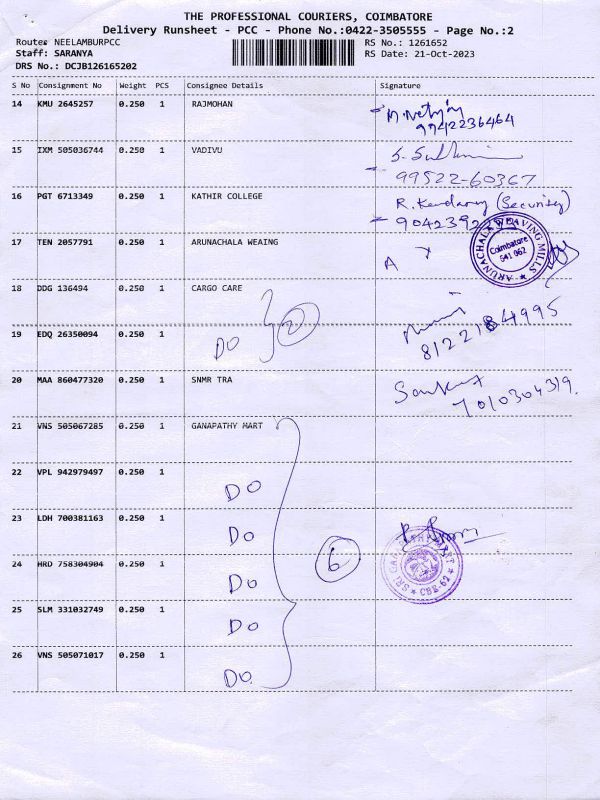 THE PROFESSIONAL COURIERS, COIMBATORE
Delivery Runsheet - PCC - Phone No.:0422-3505555 - Page No.:2
Route: NEELAMBURPCC RS No.: 1261652
Staff: SARANYA RS Date: 21-Oct-2023
DRS No.: DCJB126165202
S No Consignment No Weight PCS Consignee Details Signature
14 KMU 2645257 0.250 1 RAJMOHAN
9742236464
15 IXM 505036744 0.250 1 VADIVU
99522-60367
16 PGT 6713349 0.250 1 KATHIR COLLEGE R. (Security)
17 TEN 2057791 0.250 1 ARUNACHALA WEAING A
ARUNACHALA WEAVING MILLS
Coimbatore
641 062
18 DDG 136494 0.250 1 CARGO CARE
2
19 EDQ 26350094 0.250 1 DO 8122184995
20 MAA 860477320 0.250 1 SNMR TRA
7010304319.
21 VNS 505067285 0.250 1 GANAPATHY MART
22 VPL 942979497 0.250 1 DO
23 LDH 700381163 0.250 1 DO
6
SRI GANAPATHY MART
CBE-62
24 HRD 758304904 0.250 1 DO
25 SLM 331032749 0.250 1 DO
26 VNS 505071017 0.250 1 DO